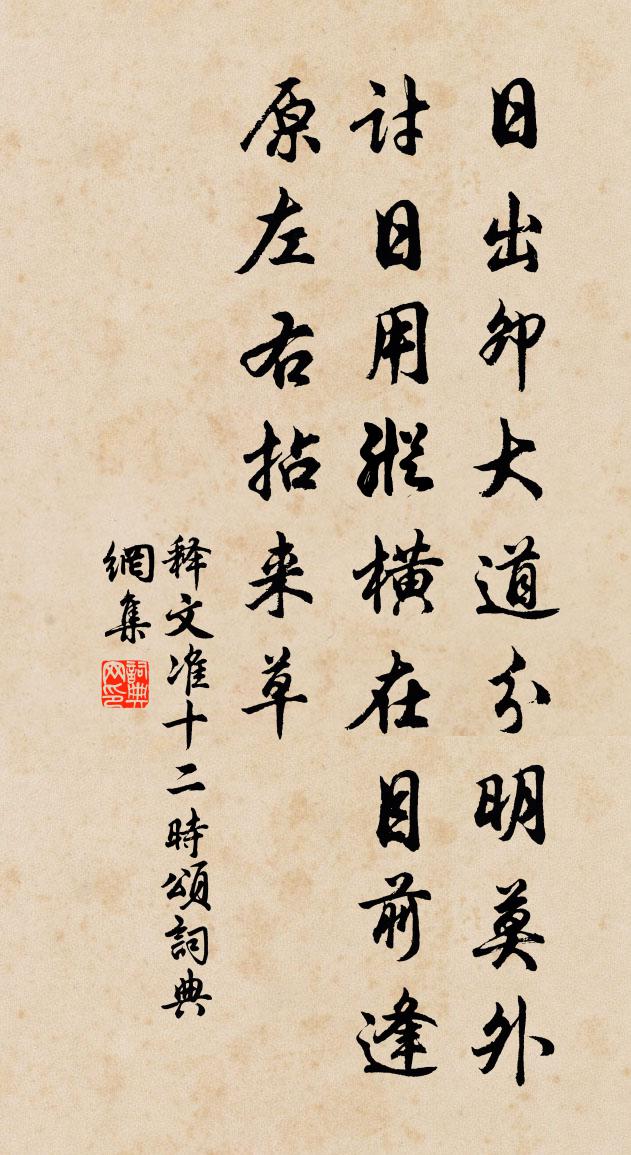 日出卯大道分明莫外
讨日用縱橫在目前逢
原左右拈来草
释文准十二時頌詞典
網集
詞典
网印